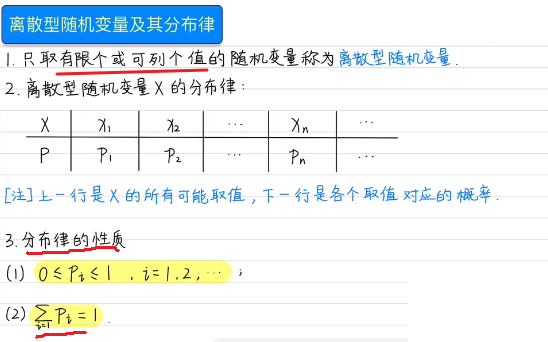 离散型随机变量及其分布律
1. 只取有限个或可列个值的随机变量称为离散型随机变量.
2. 离散型随机变量X的分布律:
X x₁ x₂ ... xₙ ...
P P₁ P₂ ... Pₙ ...
[注]上一行是X的所有可能取值,下一行是各个取值对应的概率.
3. 分布律的性质
(1) 0≤Pᵢ≤1 , i=1,2,... ;
(2) ∑ᵢ₌₁ Pᵢ=1 .